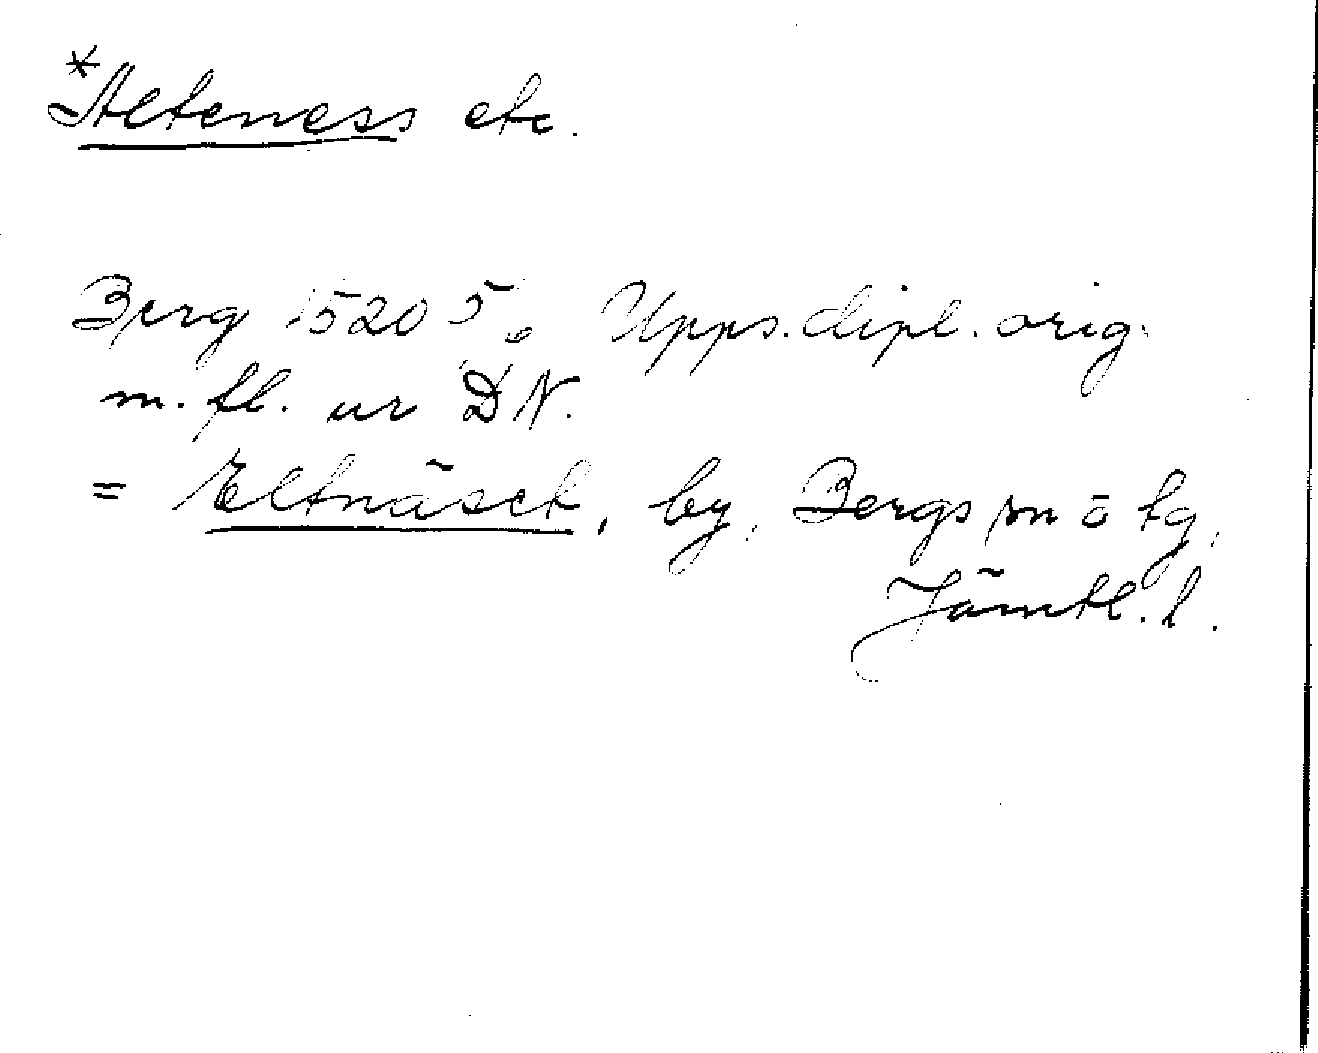 *Alteness etc.
Berg 1520 5/6 Upps. dipl. orig.
m. fl. ur DN.
= Eltnäset, by, Bergs sn o tg,
Jämtl. l.